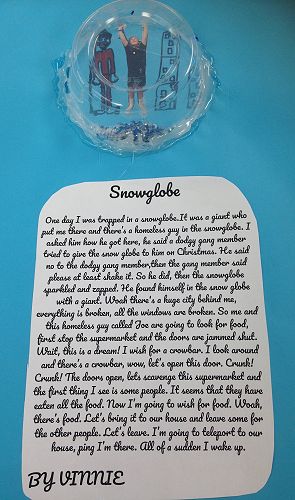 Snowglobe
One day I was trapped in a snowglobe.It was a giant who
put me there and there's a homeless guy in the snowglobe. I
asked him how he got here, he said a dodgy gang member
tried to give the snow globe to him on Christmas. He said
no to the dodgy gang member,then the gang member said
please at least shake it. So he did, then the snowglobe
sparkled and zapped. He found himself in the snow globe
with a giant. Woah there's a huge city behind me,
everything is broken, all the windows are broken. So me and
this homeless guy called Joe are going to look for food,
first stop the supermarket and the doors are jammed shut.
Wait, this is a dream! I wish for a crowbar. I look around
and there's a crowbar, wow, let's open this door. Crunk!
Crunk! The doors open, lets scavenge this supermarket and
the first thing I see is some people. It seems that they have
eaten all the food. Now I'm going to wish for food. Woah,
there's food. Let's bring it to our house and leave some for
the other people. Let's leave. I'm going to teleport to our
house, ping I'm there. All of a sudden I wake up.
BY VINNIE